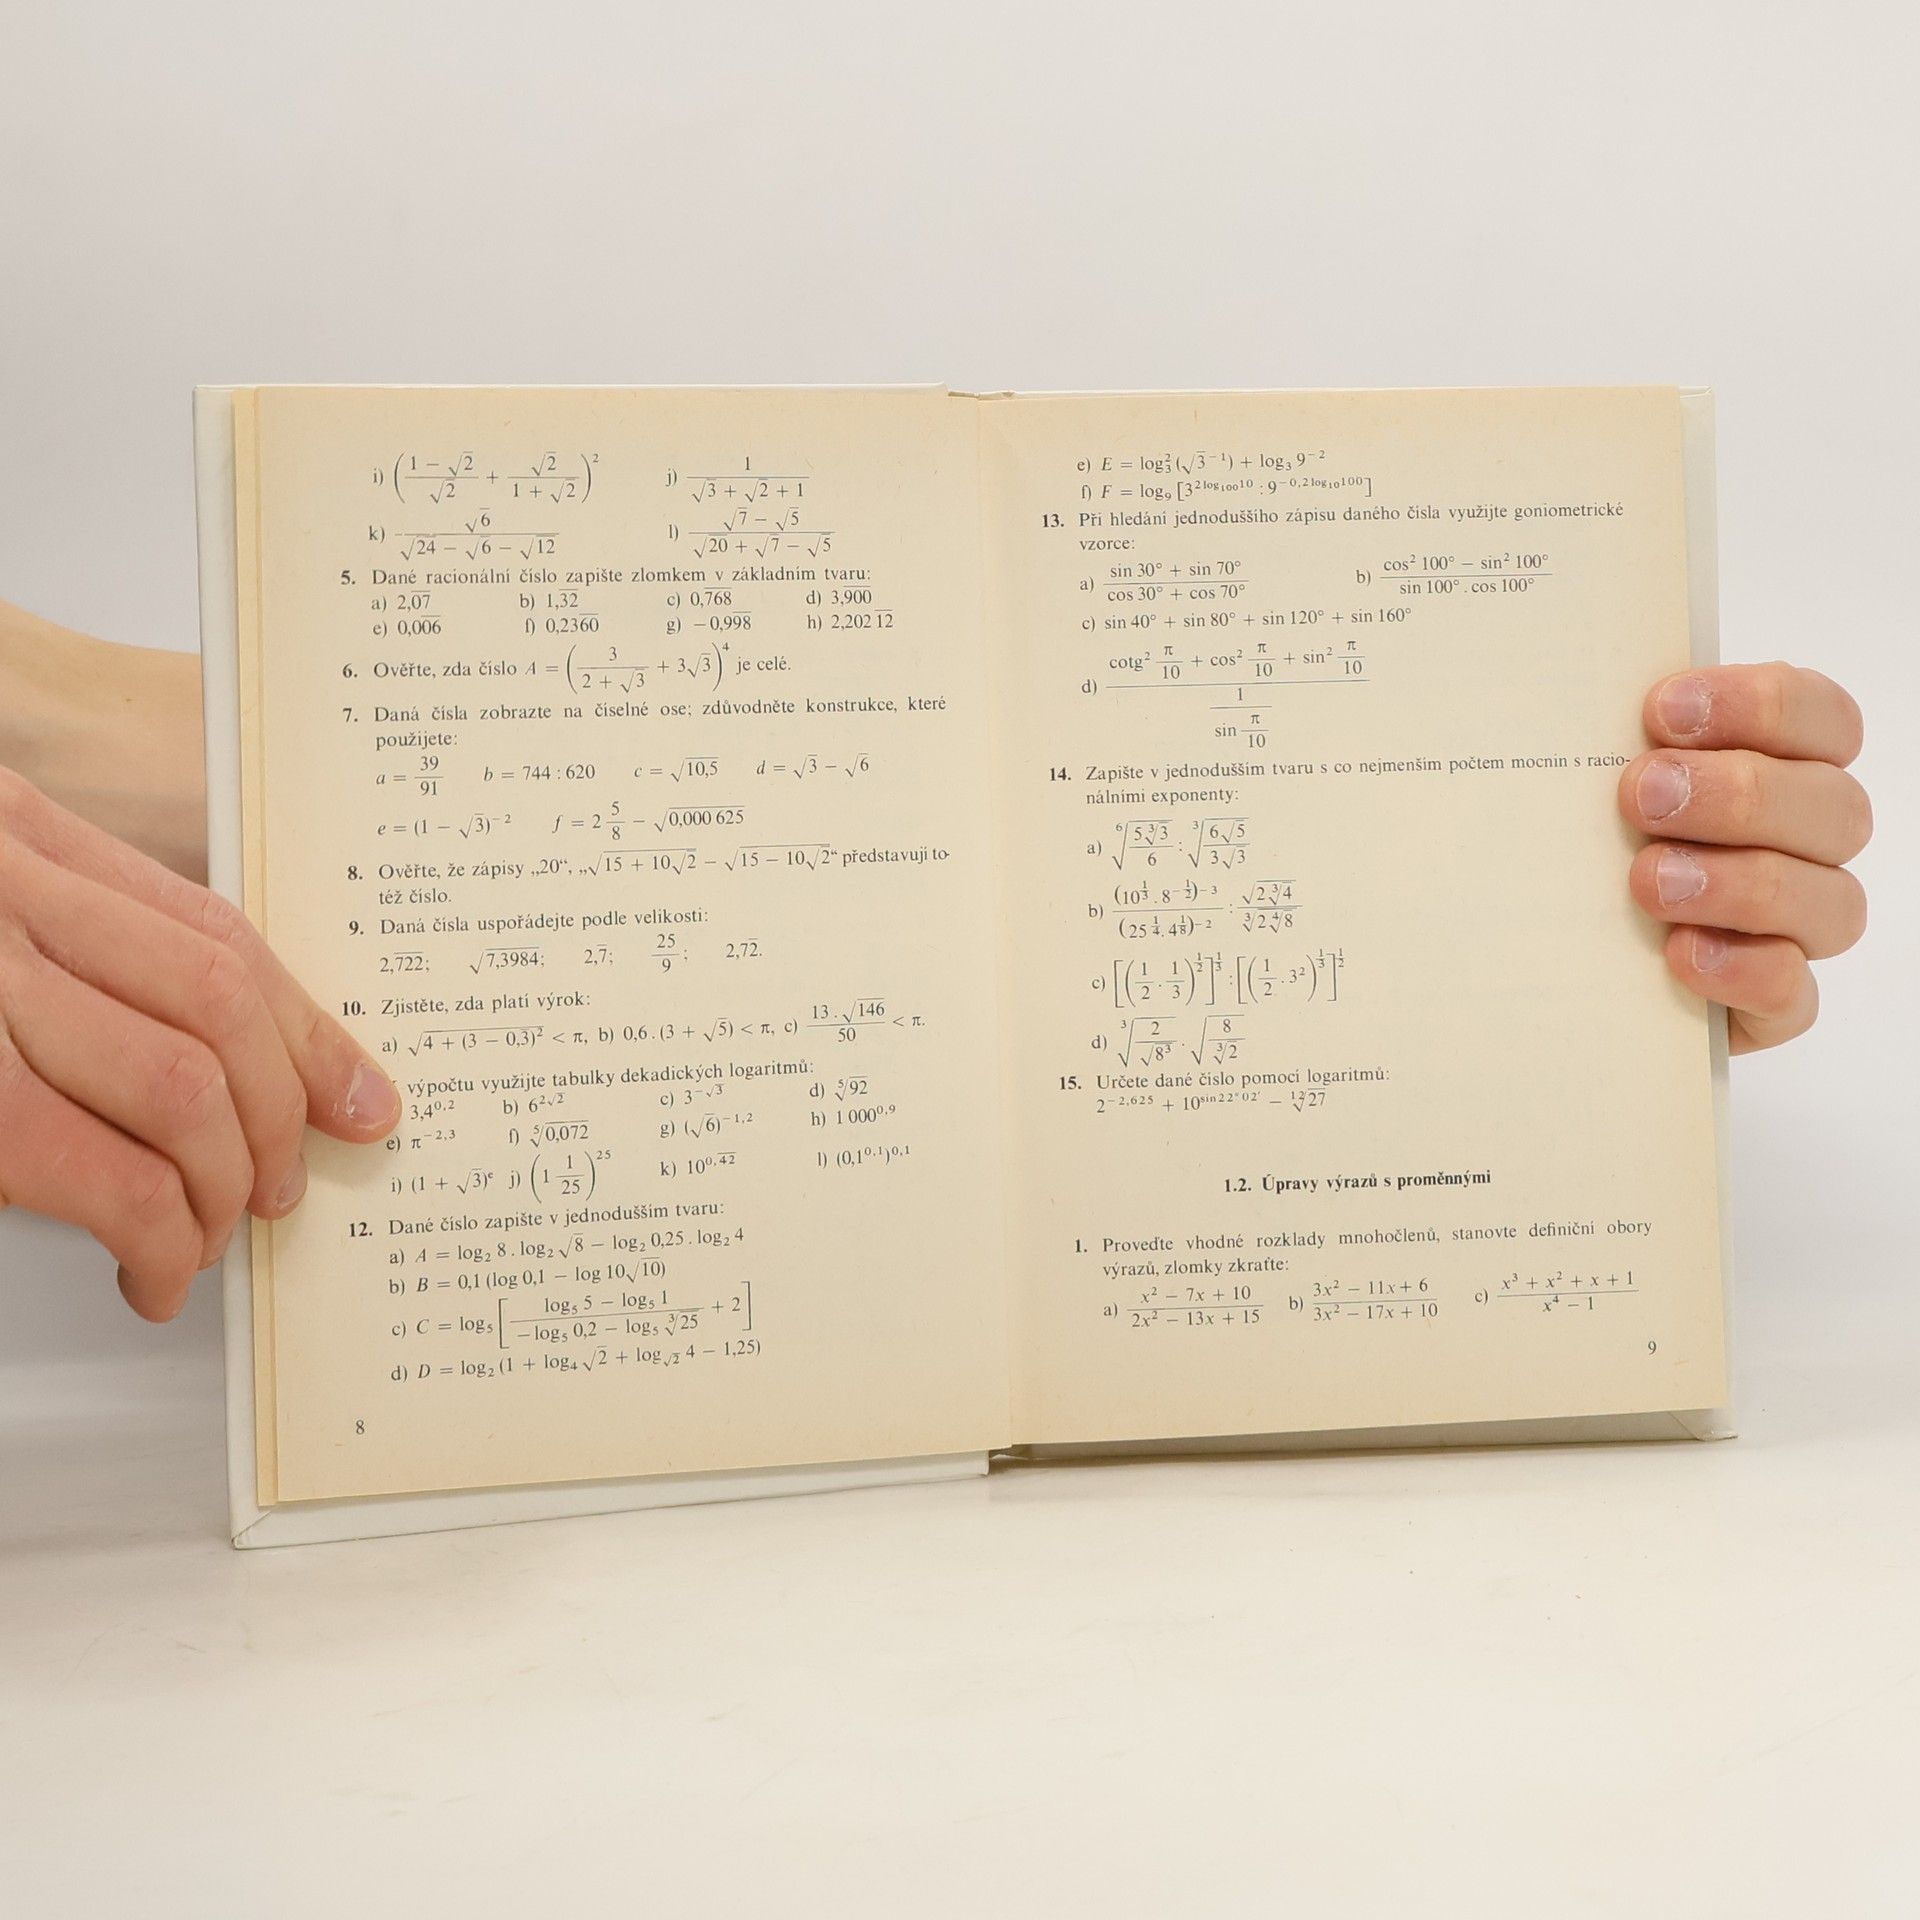 i) ((1 − √2)/√2 + √2/(1 + √2))² j) 1/(√3 + √2 + 1)
k) √6/(√24 − √6 − √12) l) (√7 − √5)/(√20 + √7 − √5)
5. Dané racionální číslo zapište zlomkem v základním tvaru:
a) 2,0̅7̅ b) 1,3̅2̅ c) 0,7̅6̅8̅ d) 3,9̅0̅0̅
e) 0,0̅0̅6̅ f) 0,236̅0̅ g) −0,9̅9̅8̅ h) 2,202 1̅2̅
6. Ověřte, zda číslo A = (3/(2 + √3) + 3√3)⁴ je celé.
7. Daná čísla zobrazte na číselné ose; zdůvodněte konstrukce, které
použijete:
a = 39/91 b = 744 : 620 c = √(10,5) d = √3 − √6
e = (1 − √3)⁻² f = 2 5/8 − √(0,000 625)
8. Ověřte, že zápisy „20“, „√(15 + 10√2) − √(15 − 10√2)“ představují to-
též číslo.
9. Daná čísla uspořádejte podle velikosti:
2,7̅2̅2̅; √(7,3984); 2,7̅; 25/9; 2,72̅.
10. Zjistěte, zda platí výrok:
a) √(4 + (3 − 0,3̅)²) < π, b) 0,6 . (3 + √5) < π, c) (13 . √146)/50 < π.
výpočtu využijte tabulky dekadických logaritmů:
3,4^(0,2) b) 6^(2√2) c) 3^(−√3) d) ⁵√92
e) π^(−2,3) f) ⁵√(0,072) g) (√6)^(−1,2) h) 1 000^(0,9)
i) (1 + √3)^e j) (1 1/25)^25 k) 10^(0,4̅2̅) l) (0,1^(0,1))^(0,1)
12. Dané číslo zapište v jednodušším tvaru:
a) A = log₂ 8 . log₂ √8 − log₂ 0,25 . log₂ 4
b) B = 0,1 (log 0,1 − log 10√10)
c) C = log₅ [(log₅ 5 − log₅ 1)/(−log₅ 0,2 − log₅ ³√25) + 2]
d) D = log₂ (1 + log₄ √2 + log_√2 4 − 1,25)
8
e) E = log₃² (√3⁻¹) + log₃ 9⁻²
f) F = log₉ [3^(2 log₁₀₀ 10) : 9^(−0,2 log₁₀ 100)]
13. Při hledání jednoduššího zápisu daného čísla využijte goniometrické
vzorce:
a) (sin 30° + sin 70°)/(cos 30° + cos 70°) b) (cos² 100° − sin² 100°)/(sin 100° . cos 100°)
c) sin 40° + sin 80° + sin 120° + sin 160°
d) (cotg² π/10 + cos² π/10 + sin² π/10)/(1/(sin π/10))
14. Zapište v jednodušším tvaru s co nejmenším počtem mocnin s racio-
nálními exponenty:
a) ⁶√((5 ³√3)/6) : ³√((6√5)/(3√3))
b) (10^(1/3) . 8^(−1/2))^(−3)/(25^(1/4) . 4^(1/8))^(−2) : √(2 ³√4)/³√(2 ⁴√8)
c) [(1/2 . 1/3)^(1/2)]^(1/3) : [(1/2 . 3²)^(1/3)]^(1/2)
d) ³√(2/√(8³)) . √(8/³√2)
15. Určete dané číslo pomocí logaritmů:
2^(−2,625) + 10^(sin 22° 02′) − ¹²√27
1.2. Úpravy výrazů s proměnnými
1. Proveďte vhodné rozklady mnohočlenů, stanovte definiční obory
výrazů, zlomky zkraťte:
a) (x² − 7x + 10)/(2x² − 13x + 15) b) (3x² − 11x + 6)/(3x² − 17x + 10) c) (x³ + x² + x + 1)/(x⁴ − 1)
9